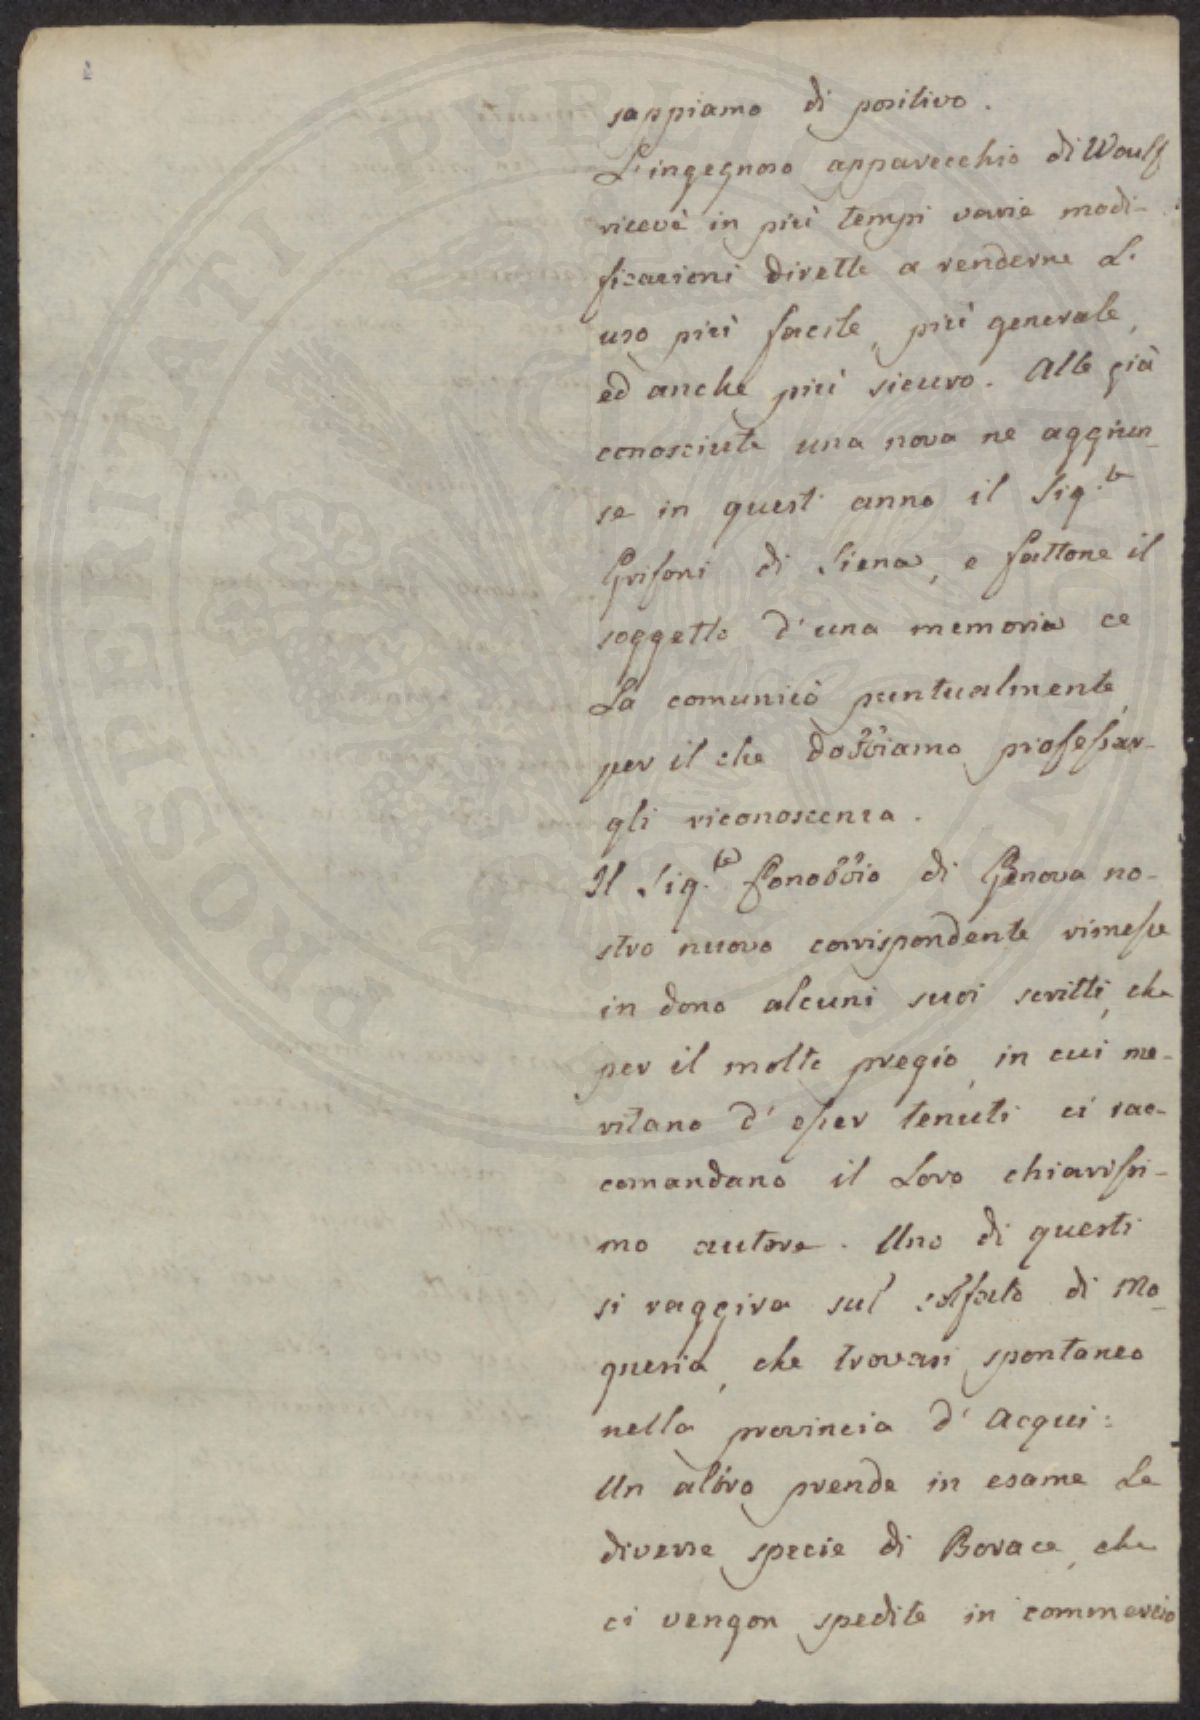 sappiamo di positivo.
L'ingegnoso apparecchio di Woulf
ricevè in più tempi varie modi-
ficazioni dirette a renderne l'
uso più facile, più generale,
ed anche più sicuro. Alle già
conosciute una nova ne aggiun-
se in quest' anno il Sig.re
Grifoni di Siena, e fattone il
soggetto d'una memoria ce
la comunicò puntualmente,
per il che dobbiamo professar-
gli riconoscenza.
Il Sig.re di Genova no-
stro nuovo corrispondente rimesse
in dono alcuni suoi scritti, che
per il molto pregio, in cui me-
ritano d'esser tenuti ci rac-
comandano il loro chiarissi-
mo autore. Uno di questi
si raggira sul solfato di Ma-
gnesia, che trovasi spontaneo
nella provincia d'Acqui:
Un altro prende in esame le
diverse specie di Borace, che
ci vengon spedite in commercio
PROSPERITATI PUBLICAE